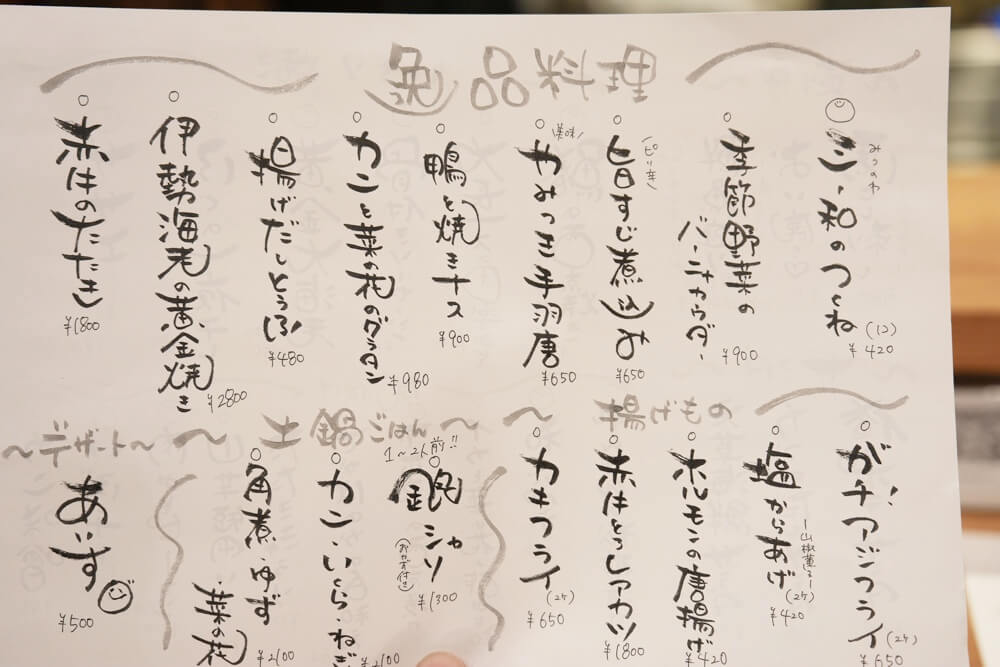 逸品料理
みつのわ
三和のつくね
(1コ)
¥420
季節野菜の
バーニャカウダー
¥900
ピリ辛
旨すじ煮込み
¥650
美味
やみつき手羽唐
¥650
鴨と焼きナス
¥900
カニと菜の花のグラタン
¥980
揚げだしとうふ
¥480
伊勢海老の黄金焼き
¥2800
赤牛のたたき
¥1800
揚げもの
ガチ!アジフライ
(2ケ)
¥650
塩からあげ
ー山椒薫るー
(2ケ)
¥420
ホルモンの唐揚げ
¥420
赤牛とろレアカツ
¥1800
カキフライ
(2ケ)
¥650
〜土鍋ごはん〜
1〜2人前!!
銀シャリ
(おかず付き)
¥1300
カニ・いくら・ねぎ
¥2100
角煮・ゆず
・菜の花
¥2100
〜デザート〜
あいす
¥500